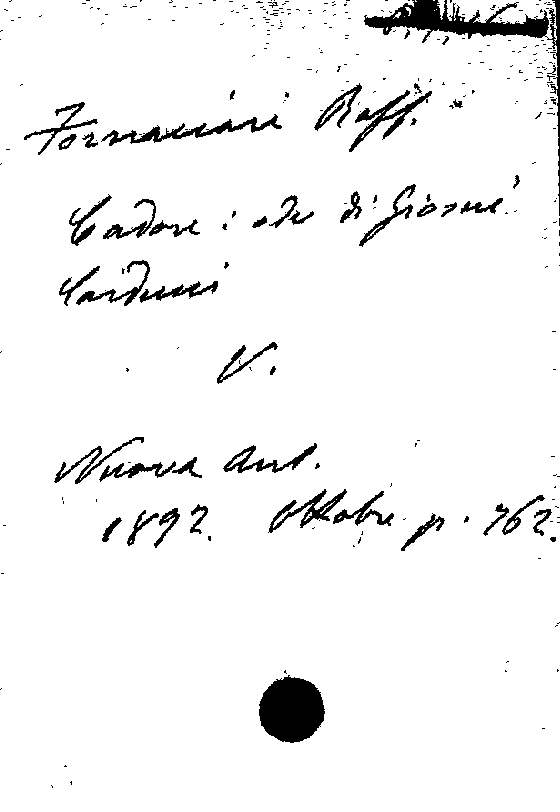 Fornaciari Raff.
Cadore: ode di Giosuè
Carducci
V.
Nuova Ant.
1892. Ottobre p. 762.